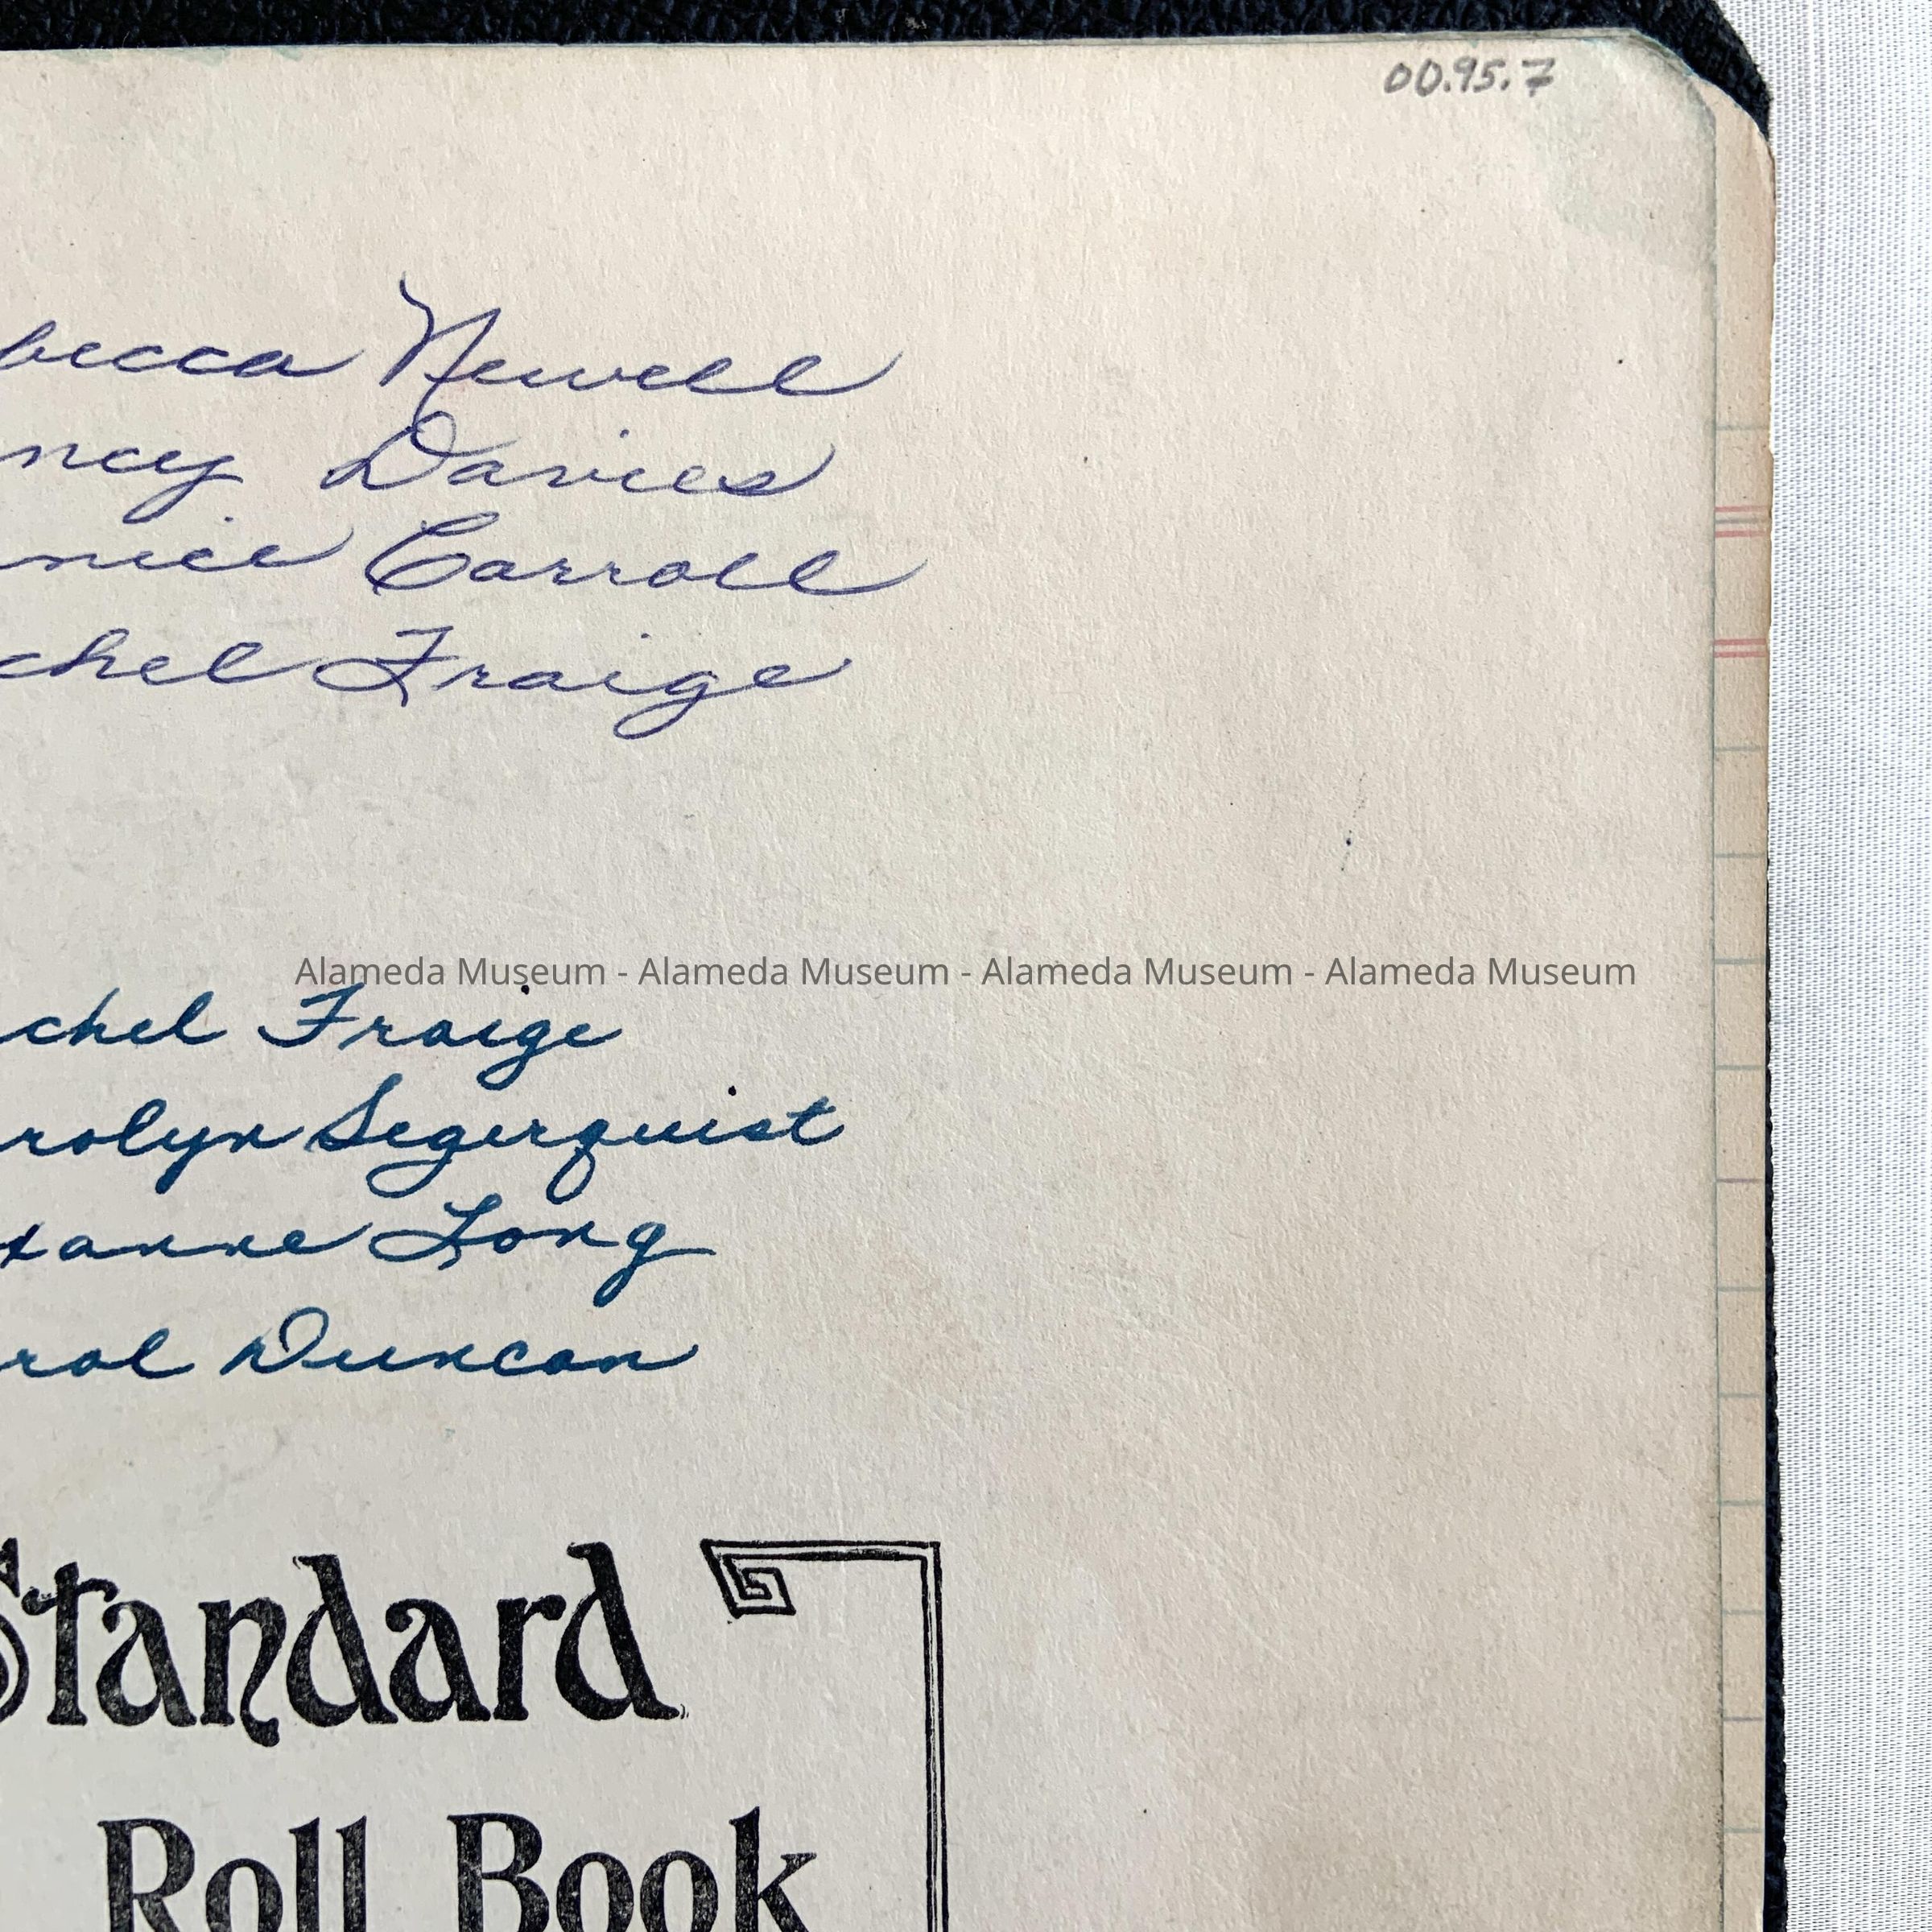 00.95.7
becca Newell
ncy Davies
nice Carroll
chel Fraige
Alameda Museum - Alameda Museum - Alameda Museum - Alameda Museum
chel Fraige
rolyn Segerquist
xanne Long
rol Duncan
Standard
Roll Book